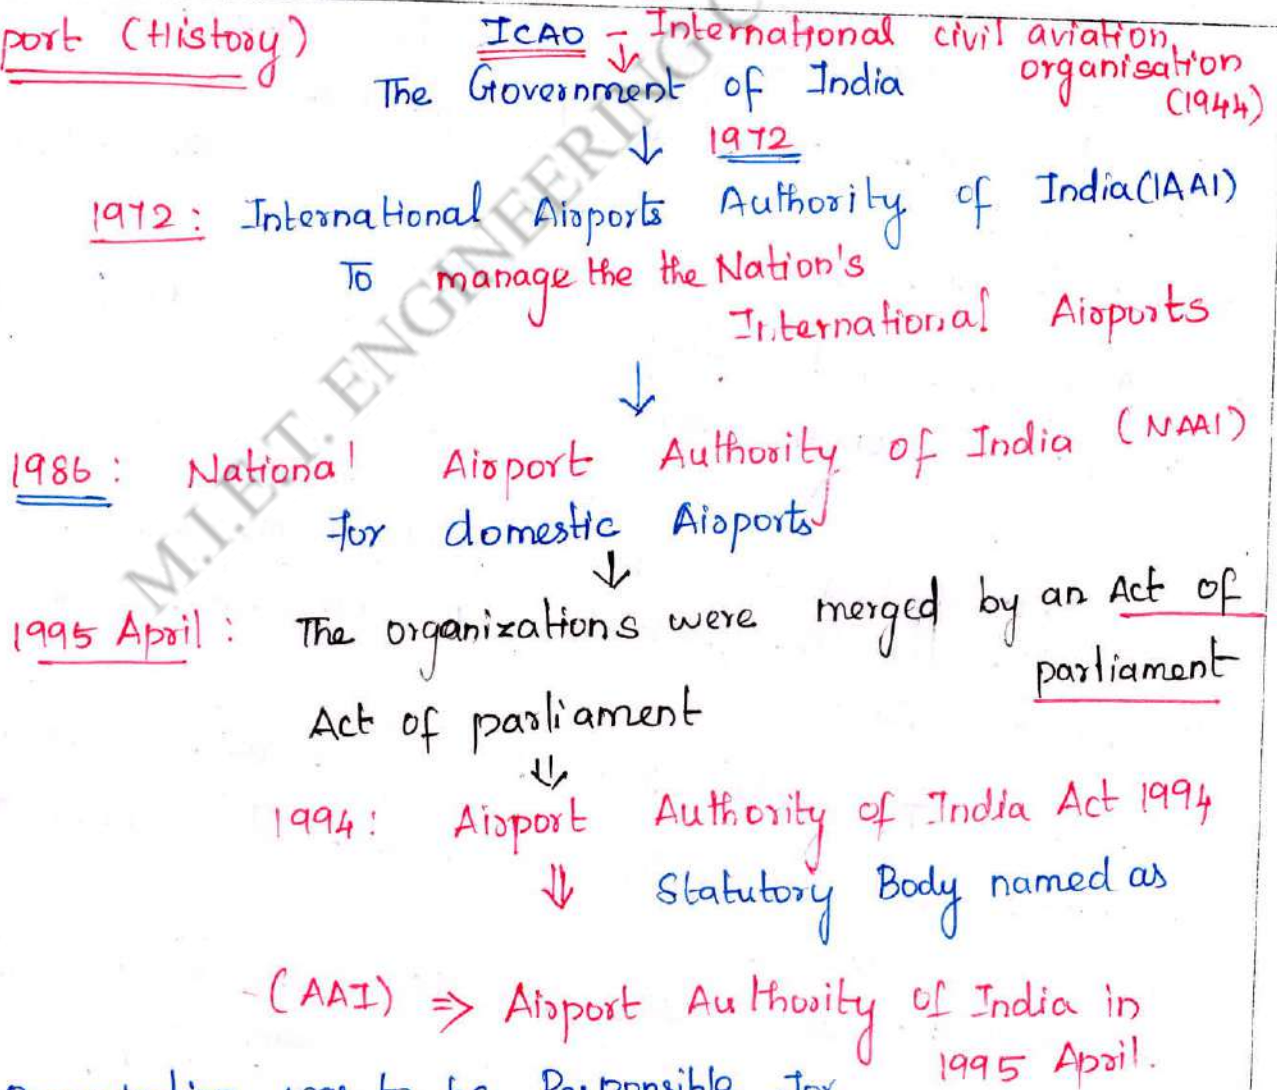 port (History)
ICAO - International civil aviation organisation (1944)
The Government of India
1972
1972: International Airports Authority of India (IAAI)
To manage the the Nation's
International Airports
1986: National Airport Authority of India (NAAI)
for domestic Airports
1995 April: The organizations were merged by an Act of
parliament
Act of parliament
1994: Airport Authority of India Act 1994
Statutory Body named as
(AAI) ⇒ Airport Authority of India in
1995 April.
was to be Responsible for
M.I.E.T. ENGINEERING